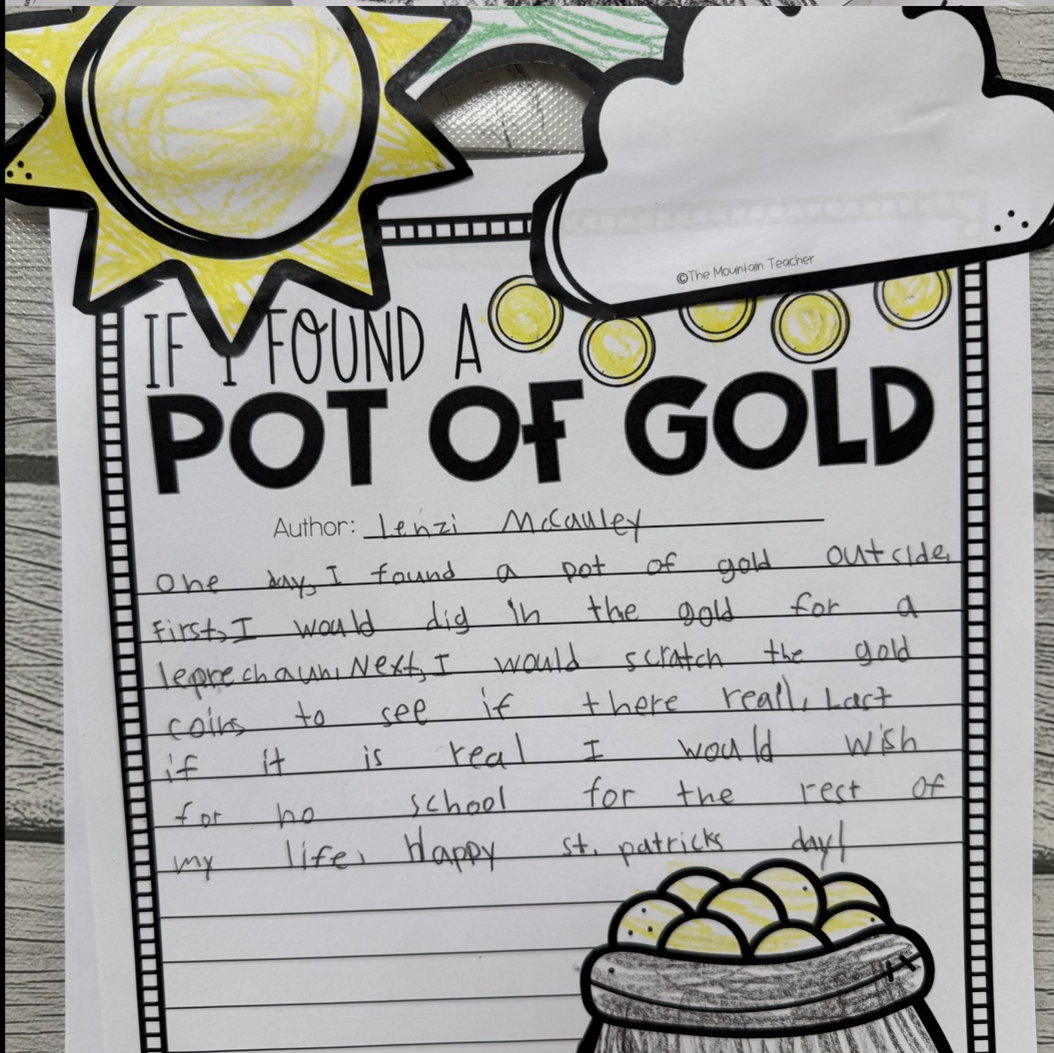 ©The Mountain Teacher
IF I FOUND A
POT OF GOLD
Author: Lenzi McCauley
One day, I found a pot of gold outside.
First, I would dig in the gold for a
leprechaun. Next, I would scratch the gold
coins to see if there reall. Last
if it is real I would wish
for no school for the rest of
my life. Happy st. patricks day!